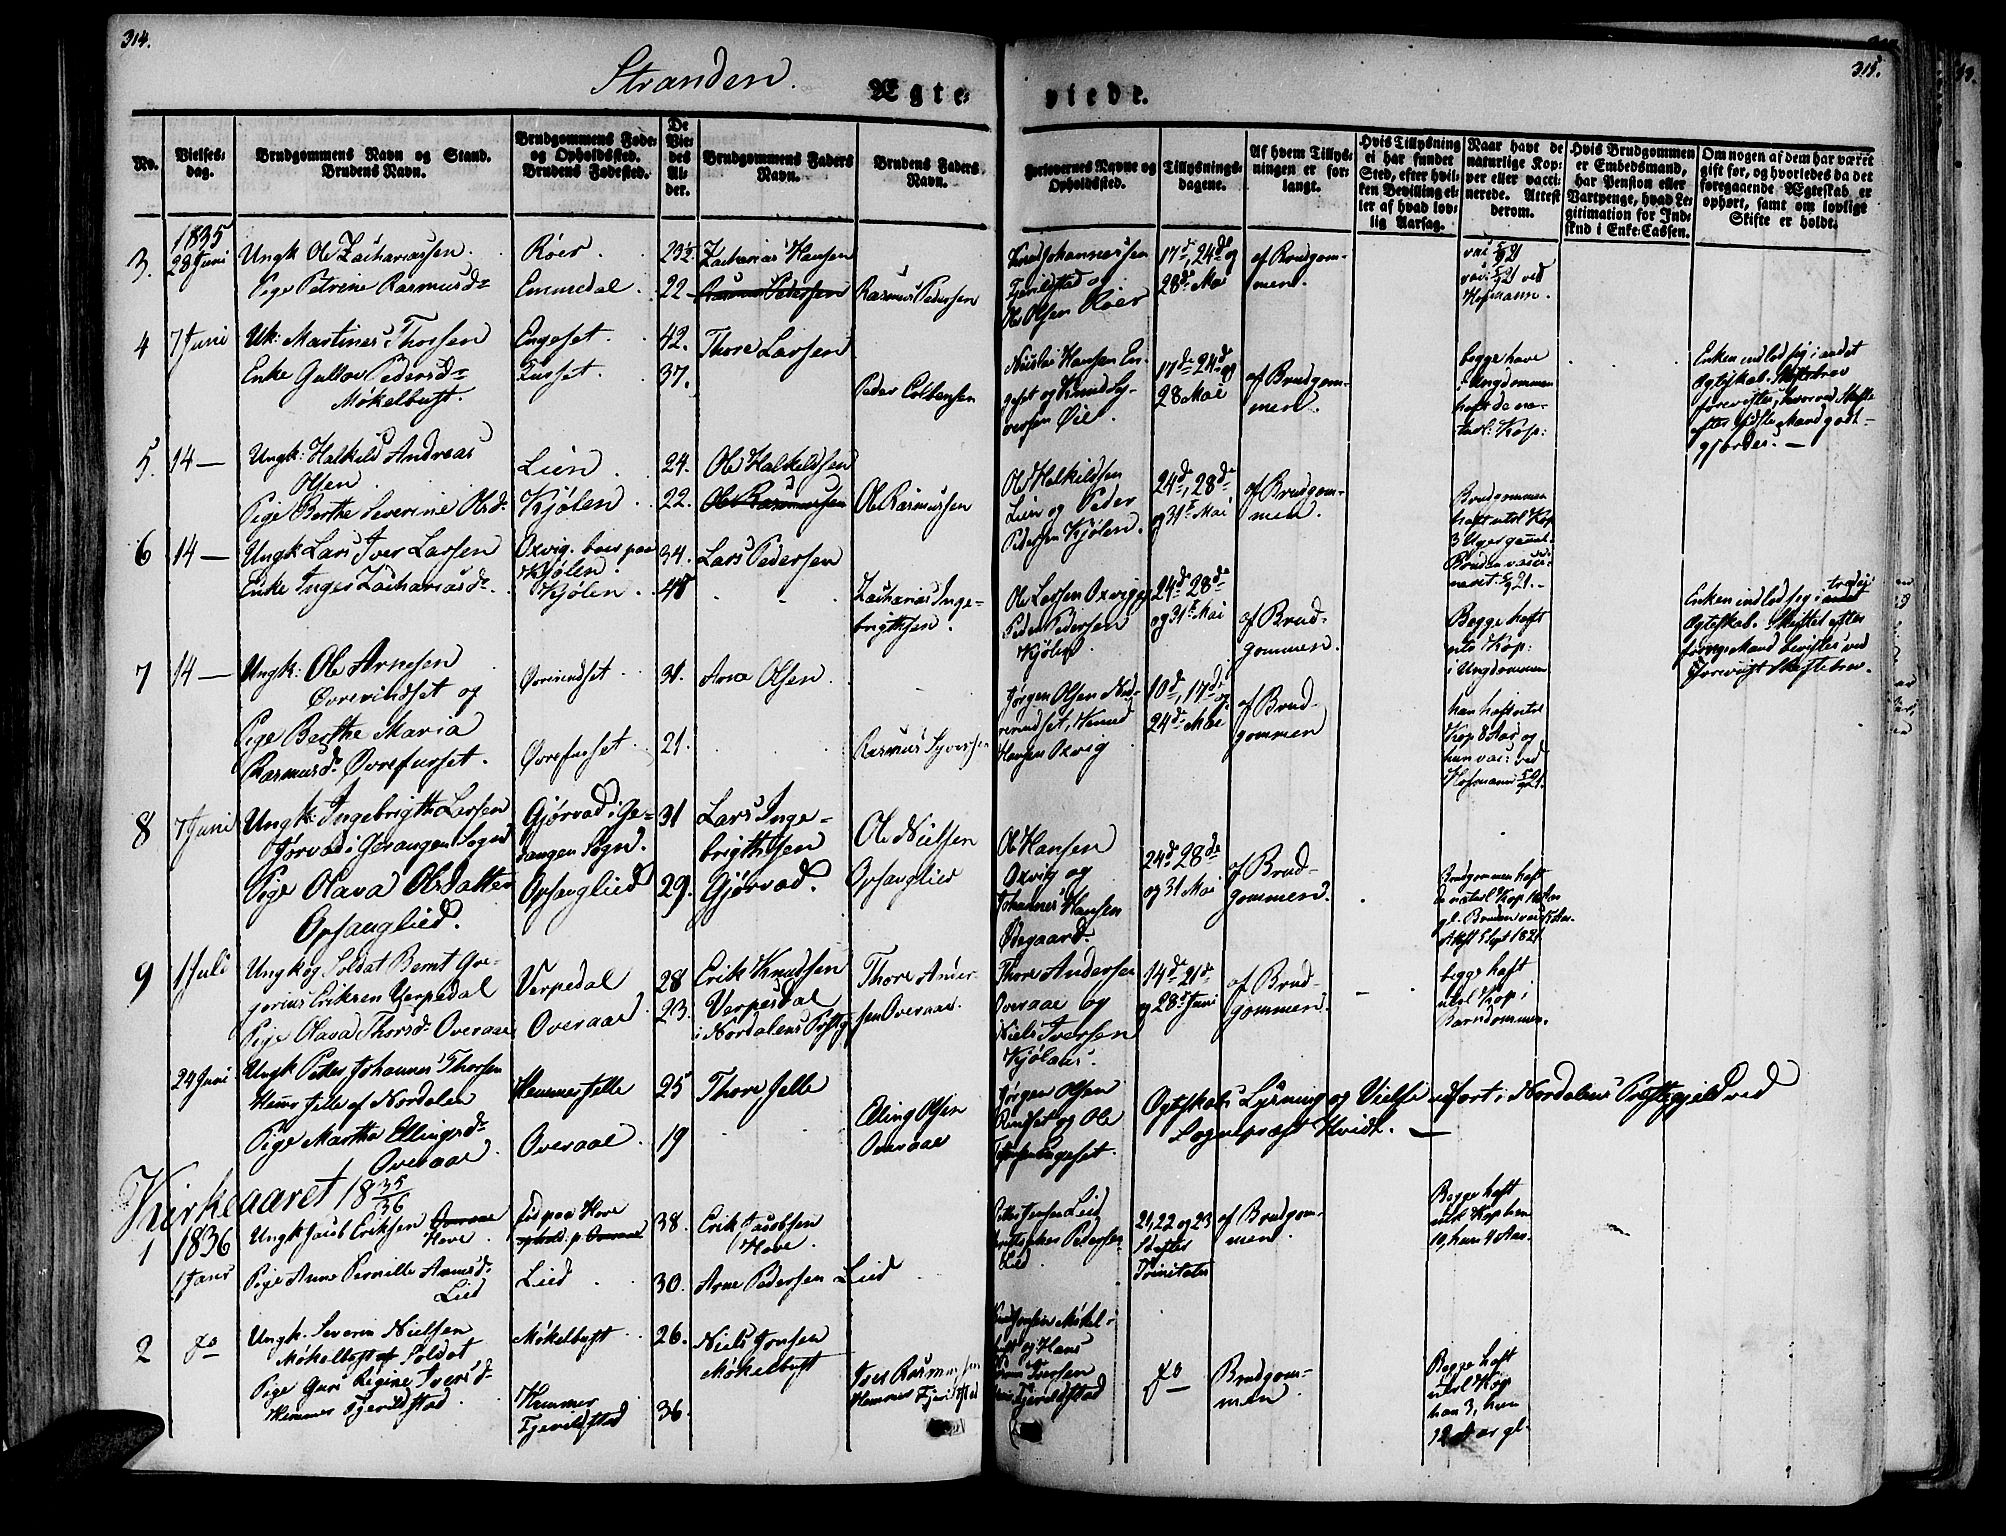 314.
Stranden.
Ægte-
viede.
315.
No.
Vielses-
dag.
Brudgommens Navn og Stand.
Brudens Navn.
Brudgommens Føde-
og Opholdssted.
Brudens Fødested.
De
Vie-
des
Al-
der.
Brudgommens Faders
Navn.
Brudens Faders
Navn.
Forlovernes Navne og
Opholdssted.
Tillysnings-
dagene.
Af hvem Tillys-
ningen er for-
langt.
Hvis Tillysning
ei har fundet
Sted, efter hvil-
ken Bevilling el-
ler af hvad lov-
lig Aarsag.
Naar havt de
naturlige Kop-
per eller vacci-
nerede. Attest
derom.
Hvis Brudgommen
er Embedsmand,
har Pension eller
Vartpenge, hvad Le-
gitimation for Ind-
skud i Enke-Cassen.
Om nogen af dem har været
gift før, og hvorledes da det
foregaaende Ægteskab er
ophørt, samt om lovligt
Skifte er holdt.
1835
3.
28 Juni
Ungk Ole Zachariassen
Pige Petrine Rasmusd
Røer
Emmedal
23½
22
Zacharias Hansen
Rasmus Pedersen
Rasmus Pedersen
Knud Johannessen
Fjerilstad og
Ole Olsen Røer
17d, 24d og
28d Mai
af Brudgom-
men.
vac: 5/9 21
vac: 5/9 21 ved
Hofmann.
4
7 Juni
Uk: Martinus Thorsen
Enke Gullov Pedersd
Møkelbust.
Engeset
Furset
42.
37.
Thore Larsen
Peder Colbensen
Nicolai Hansen En-
geset og Knud Sy-
versen Øie
17de 24d og
28 Mai
af Brudgom-
men.
begge have
i Ungdommen
haft de na-
turl: Kop:
Enken indlod sig i andet
Ægteskab. Skiftebrev
forevistes, hvorved Skifte
efter sidste Mand godt-
gjordes.
5.
14 —
Ungk: Halkild Andreas
Olsen
Pige Berthe Severine Olsd
Lien
Kjølen
24.
22.
Ole Halkildsen
Ole Rasmussen
Ole Rasmussen
Ole Halkildsen
Lien og Peder
Pedersen Kjølen.
24d, 28d
og 31t Mai
af Brudgom-
men.
Brudgommen
haft natl Kop
3 Uger gammel.
Bruden vacci-
neret 5/9 21.
6
14 —
Ungk Lars Iver Larsen
Enke Inger Zachariasd
Oxvig. boer paa
Kjølen.
Kjølen
34.
Lars Pedersen
Zacharias Inge-
brigthsen.
Ole Larsen Oxvig
Peder Pedersen
Kjølen
24d 28d
og 31t Mai
af Brud-
gommen.
Begge haft
nat: Kop:
i Ungdommen
Enken indlod sig i andet
tredje
Ægteskab. Skiftet efter
forrige Mand bevistes ved
Forevist Skiftebrev.
7
14 —
Ungk: Ole Arnesen
Øvrevindset og
Pige Berthe Maria
Rasmusd Øvrefurset.
Øvrevindset
Øvrefurset
31.
21.
Arne Olsen
Rasmus Syversen
Jørgen Olsen Ned-
revindset, Knud
Hansen Oxvig
10d, 17d og
24d Mai
af Brud-
gommen
han haft natrl
Kop 8 Aar og
hun vac: ved
Hofmann 5/9 21.
8
7 Juni
Ungk: Ingebrigth Larsen
Gjørvad i Geranger Sogn
Pige Olava Olsdatter
Opsanglied.
Gjørvad i Ge-
ranger Sogn.
Opsanglied
31
29.
Lars Inge-
brigthsen
Gjørvad.
Ole Nielsen
Opsanglied
Ole Hansen
Oxvig og
Johannes Hansen
Ødegaard.
24d 28de
og 31 Mai
af Brud-
gommen.
Brudgommen haft
de naturl Kop
gl. Bruden vac
Attest 5 Sept 1821
9
1 Juli
Ungk og Soldat Bernt Gre-
gorius Eriksen Verpedal
Pige Olava Thorsd Overaae
Verpedal
Overaae
28
23.
Erik Knudsen
Verpesdal
i Nordalens Præstg
Thore Ander-
sen Overaae.
Thore Andersen
Overaae og
Niels Iversen
Kjølaas.
14d 21d
og 28d Juni
af Brud-
gommen.
begge haft
natrl Kop i
Barndommen.
24 Juni
Ungk Petter Johannes Thorsen
Hemsjelle af Nordalen
Pige Martha Ellingsd
Overaae
Hemmesjelle
Overaae
25
19
Thore Jelle
Elling Olsen
Overaae
Jørgen Olsen
Rindset og Ole
Thorsen Engeset.
Ægteskabs Lysning og Vielse udført i Nordalens Præstegjeld ved
Sognepræst Hvidt. —
Kirkeaaret 1835/36
1
1836
1 Janr
Ungk Jacob Eriksen Overaae
Hove.
Pige Anne Pernille Arnesd
Lied
født paa Hove
ophold. p. Overaae
Lied
38.
30.
Erik Jacobsen
Hove.
Arne Pedersen Lied
Petter Jensen Lied
Kristopher Pedersen
Lied.
21, 22 og 23
S. efter
Trinitatis
af Brudgom-
men.
Begge haft
natl Kop hun
10, han 4 Aar.
2
do
Ungk. Severin Nielsen
Møkelbust af Soldat
Pige Guri Regine Iversd
Hemmer Fjerildstad
Møkelbust
Hemmer
Fjerildstad
26.
36.
Niels Jonsen
Møkelbust
Iver Rasmussen
Hemmer Fjerildstad
Knud Jonsen Møkel-
bust og Hans
Iversen
Fjerildstad
do
Brudgom-
men.
Begge haft
natrl Kop
han 3, hun
12 Aar gl.